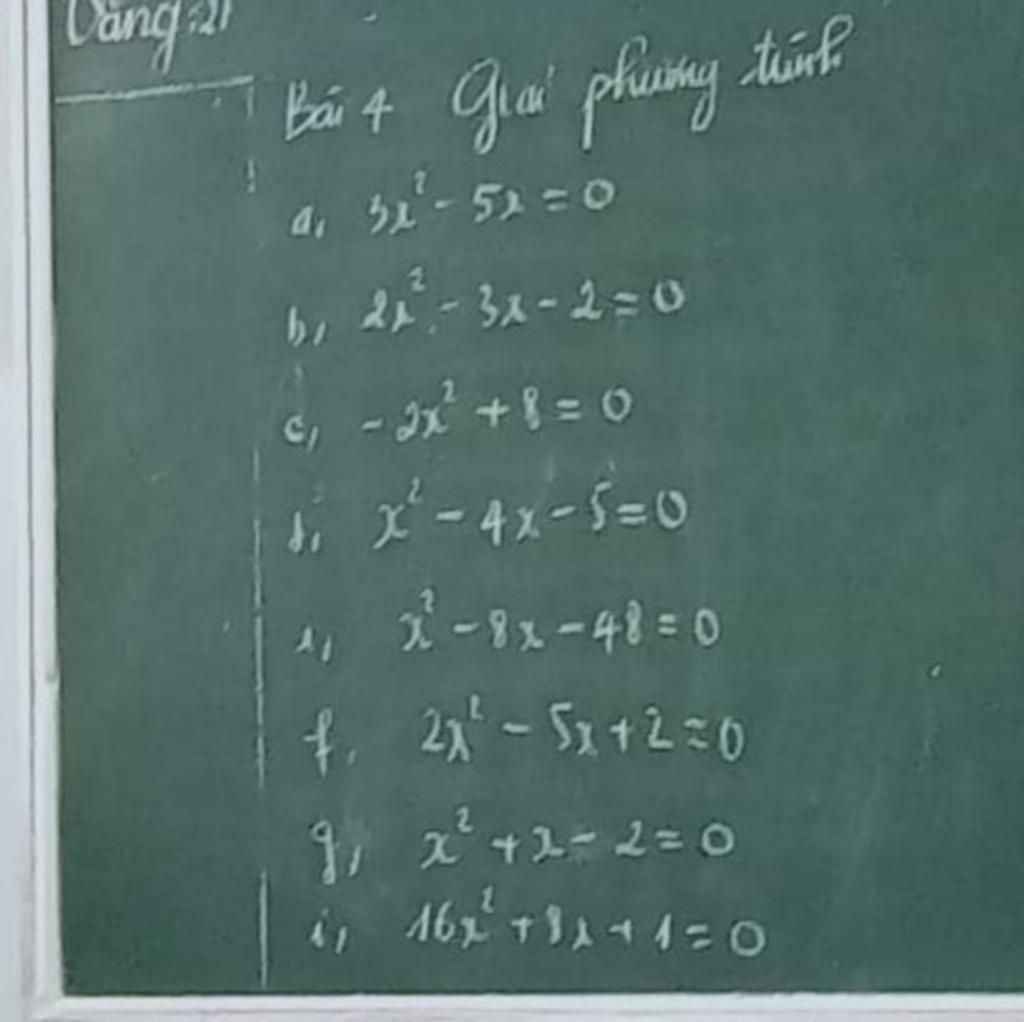 Vắng: 21
Bài 4 Giải phương trình
a, 3x² - 5x = 0
b, 2x² - 3x - 2 = 0
c, -2x² + 8 = 0
d, x² - 4x - 5 = 0
e, x² - 8x - 48 = 0
f, 2x² - 5x + 2 = 0
g, x² + x - 2 = 0
i, 16x² + 8x + 1 = 0